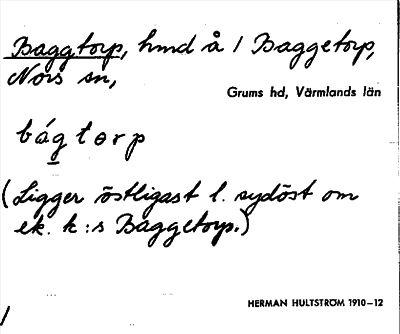 Baggtorp, hmd å 1 Baggetorp,
Nors sn,
Grums hd, Värmlands län
bágtorp
(Ligger östligast l. sydöst om
ek. k:s Baggetorp.)
HERMAN HULTSTRÖM 1910–12
/